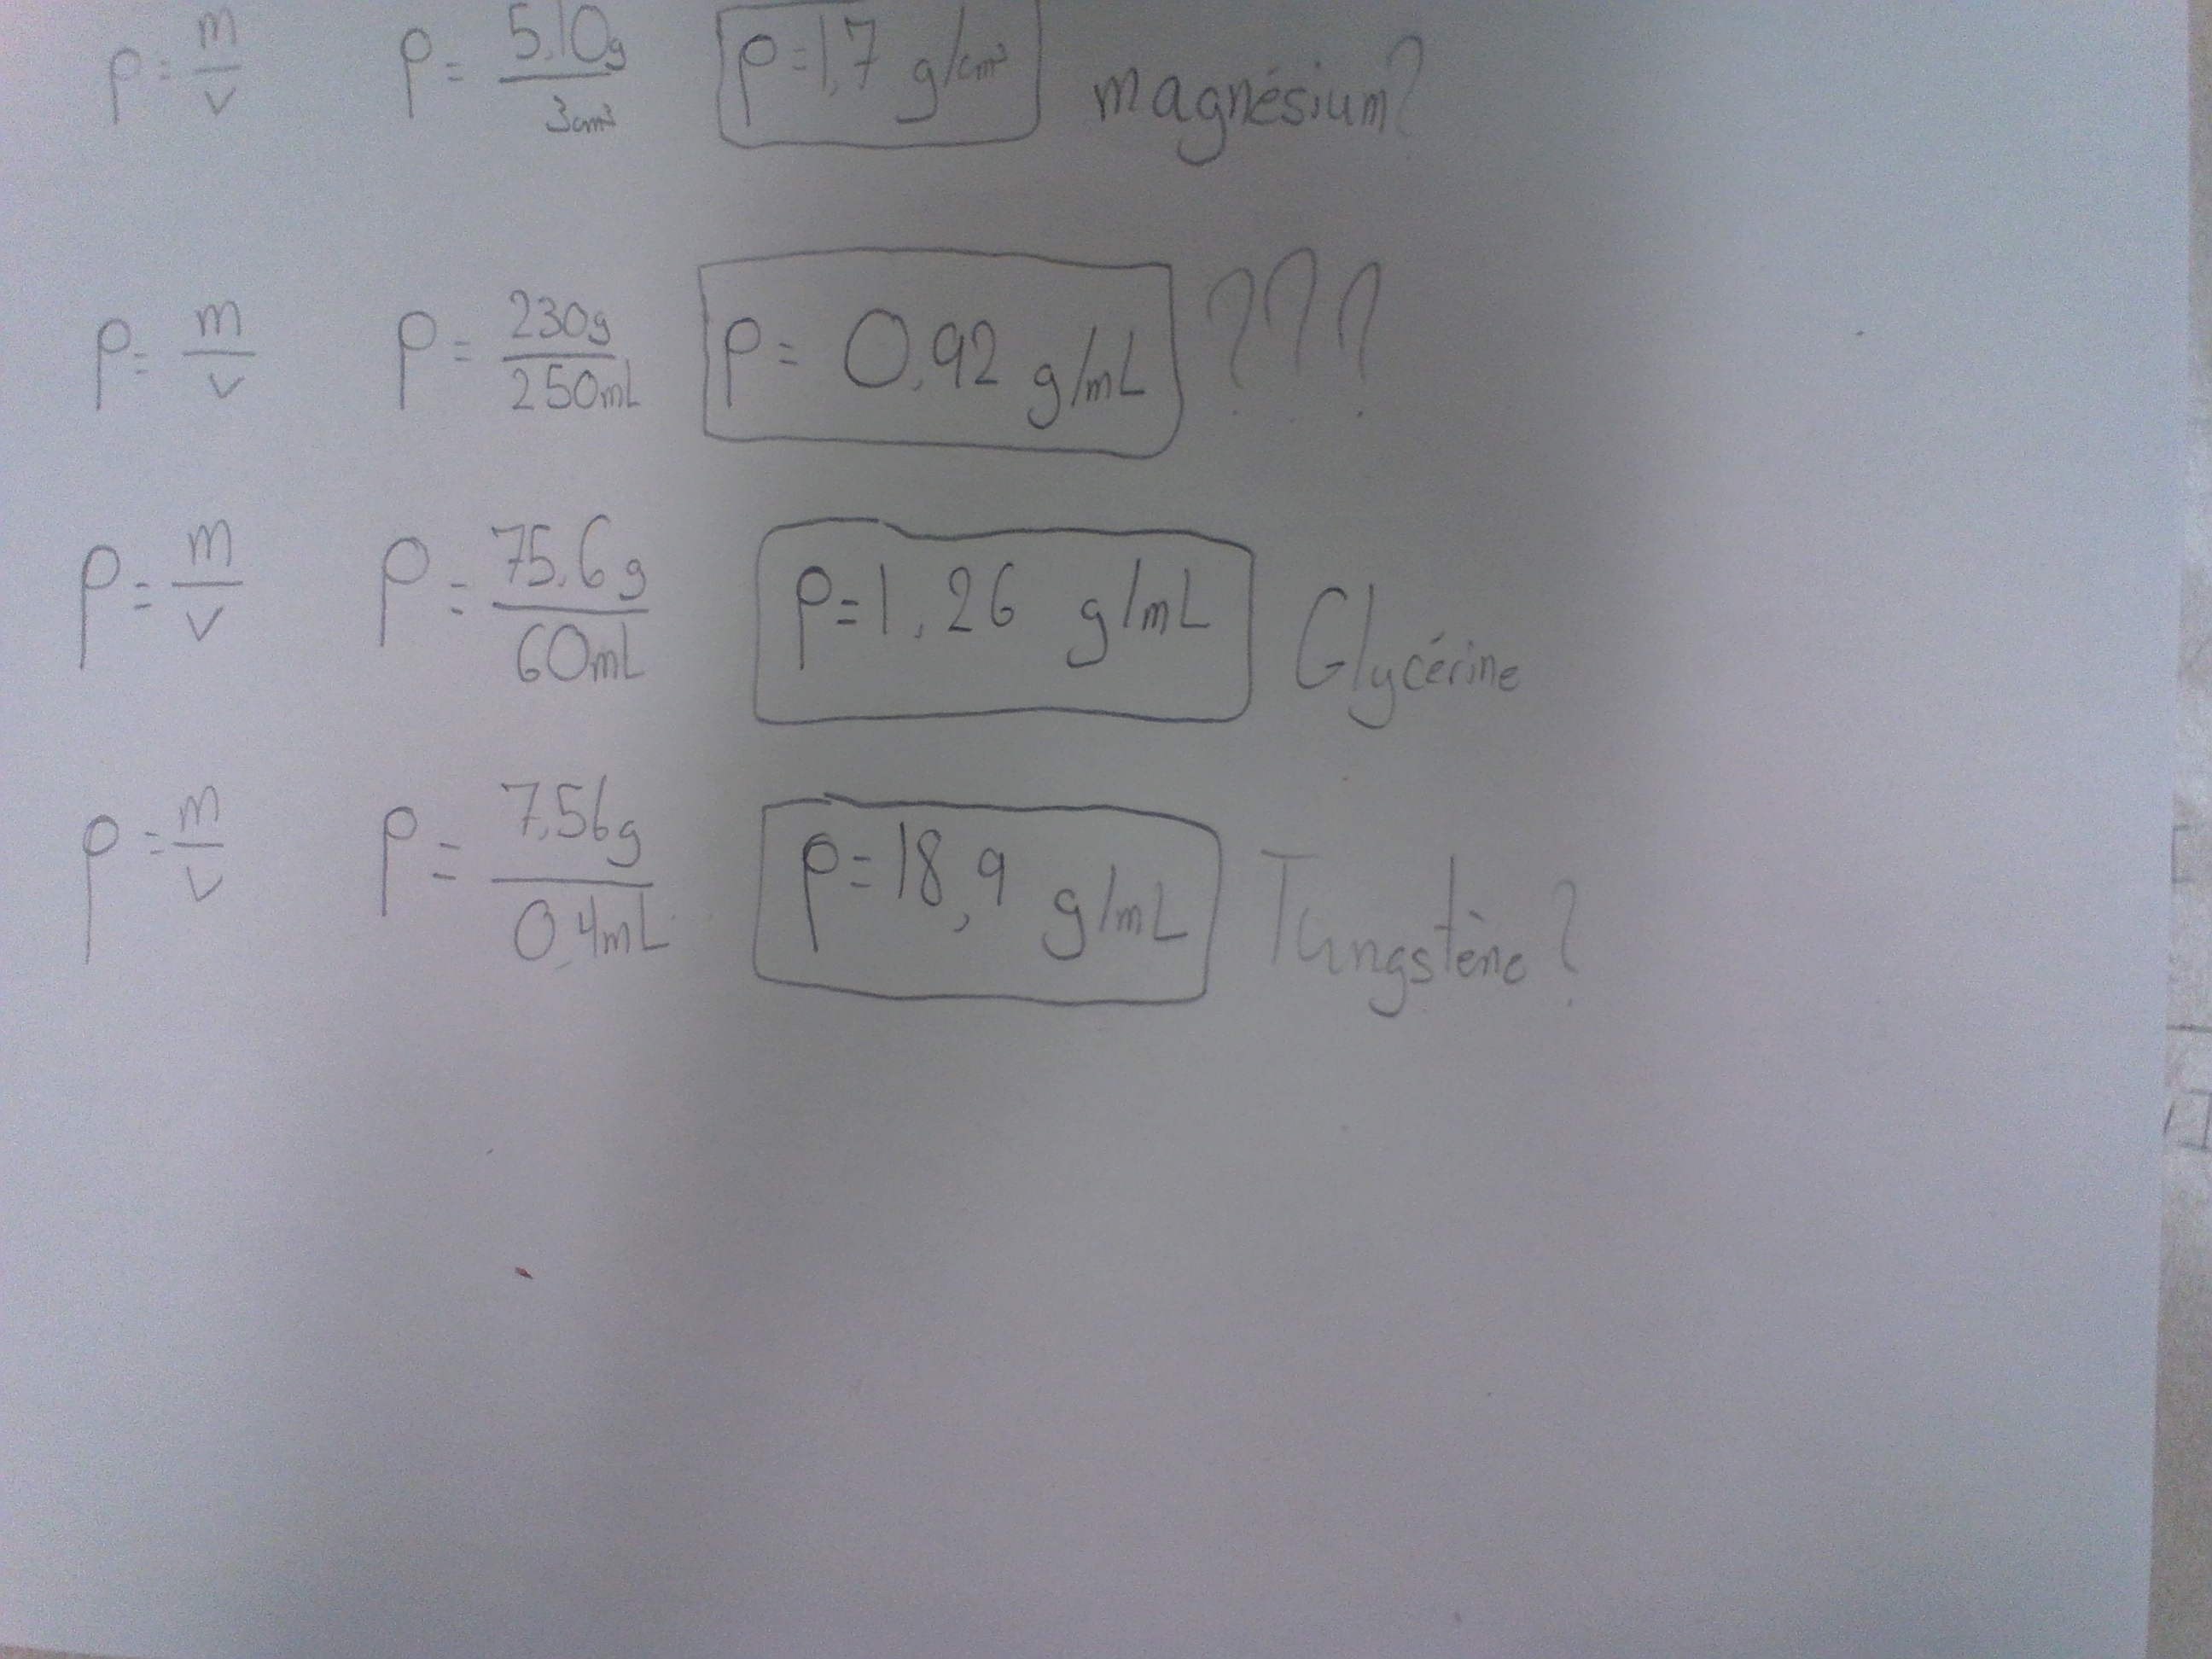 ρ = m/v ρ = 5,10g/3cm³ ρ = 1,7 g/cm³ magnésium?
ρ = m/v ρ = 230g/250mL ρ = 0,92 g/mL ???
ρ = m/v ρ = 75,6g/60mL ρ = 1,26 g/mL Glycérine
ρ = m/v ρ = 7,56g/0,4mL ρ = 18,9 g/mL Tungstène?